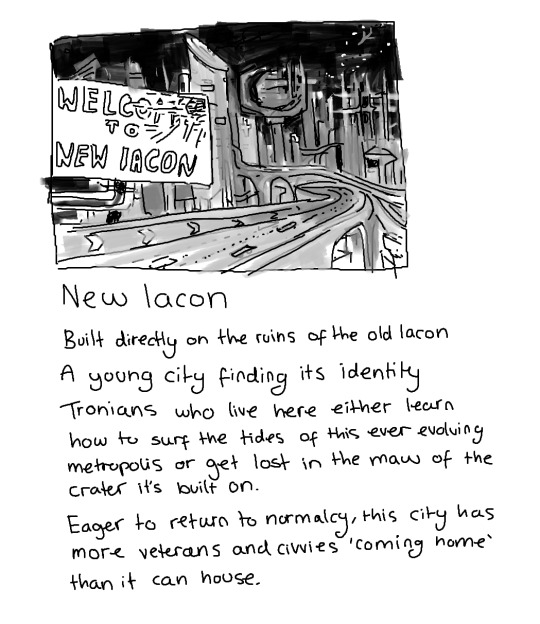 WELCO
TO
NEW IACON
New Iacon
Built directly on the ruins of the old Iacon
A young city finding its identity
Tronians who live here either learn
how to surf the tides of this ever evolving
metropolis or get lost in the maw of the
crater it's built on.
Eager to return to normalcy, this city has
more veterans and civvies 'coming home'
than it can house.